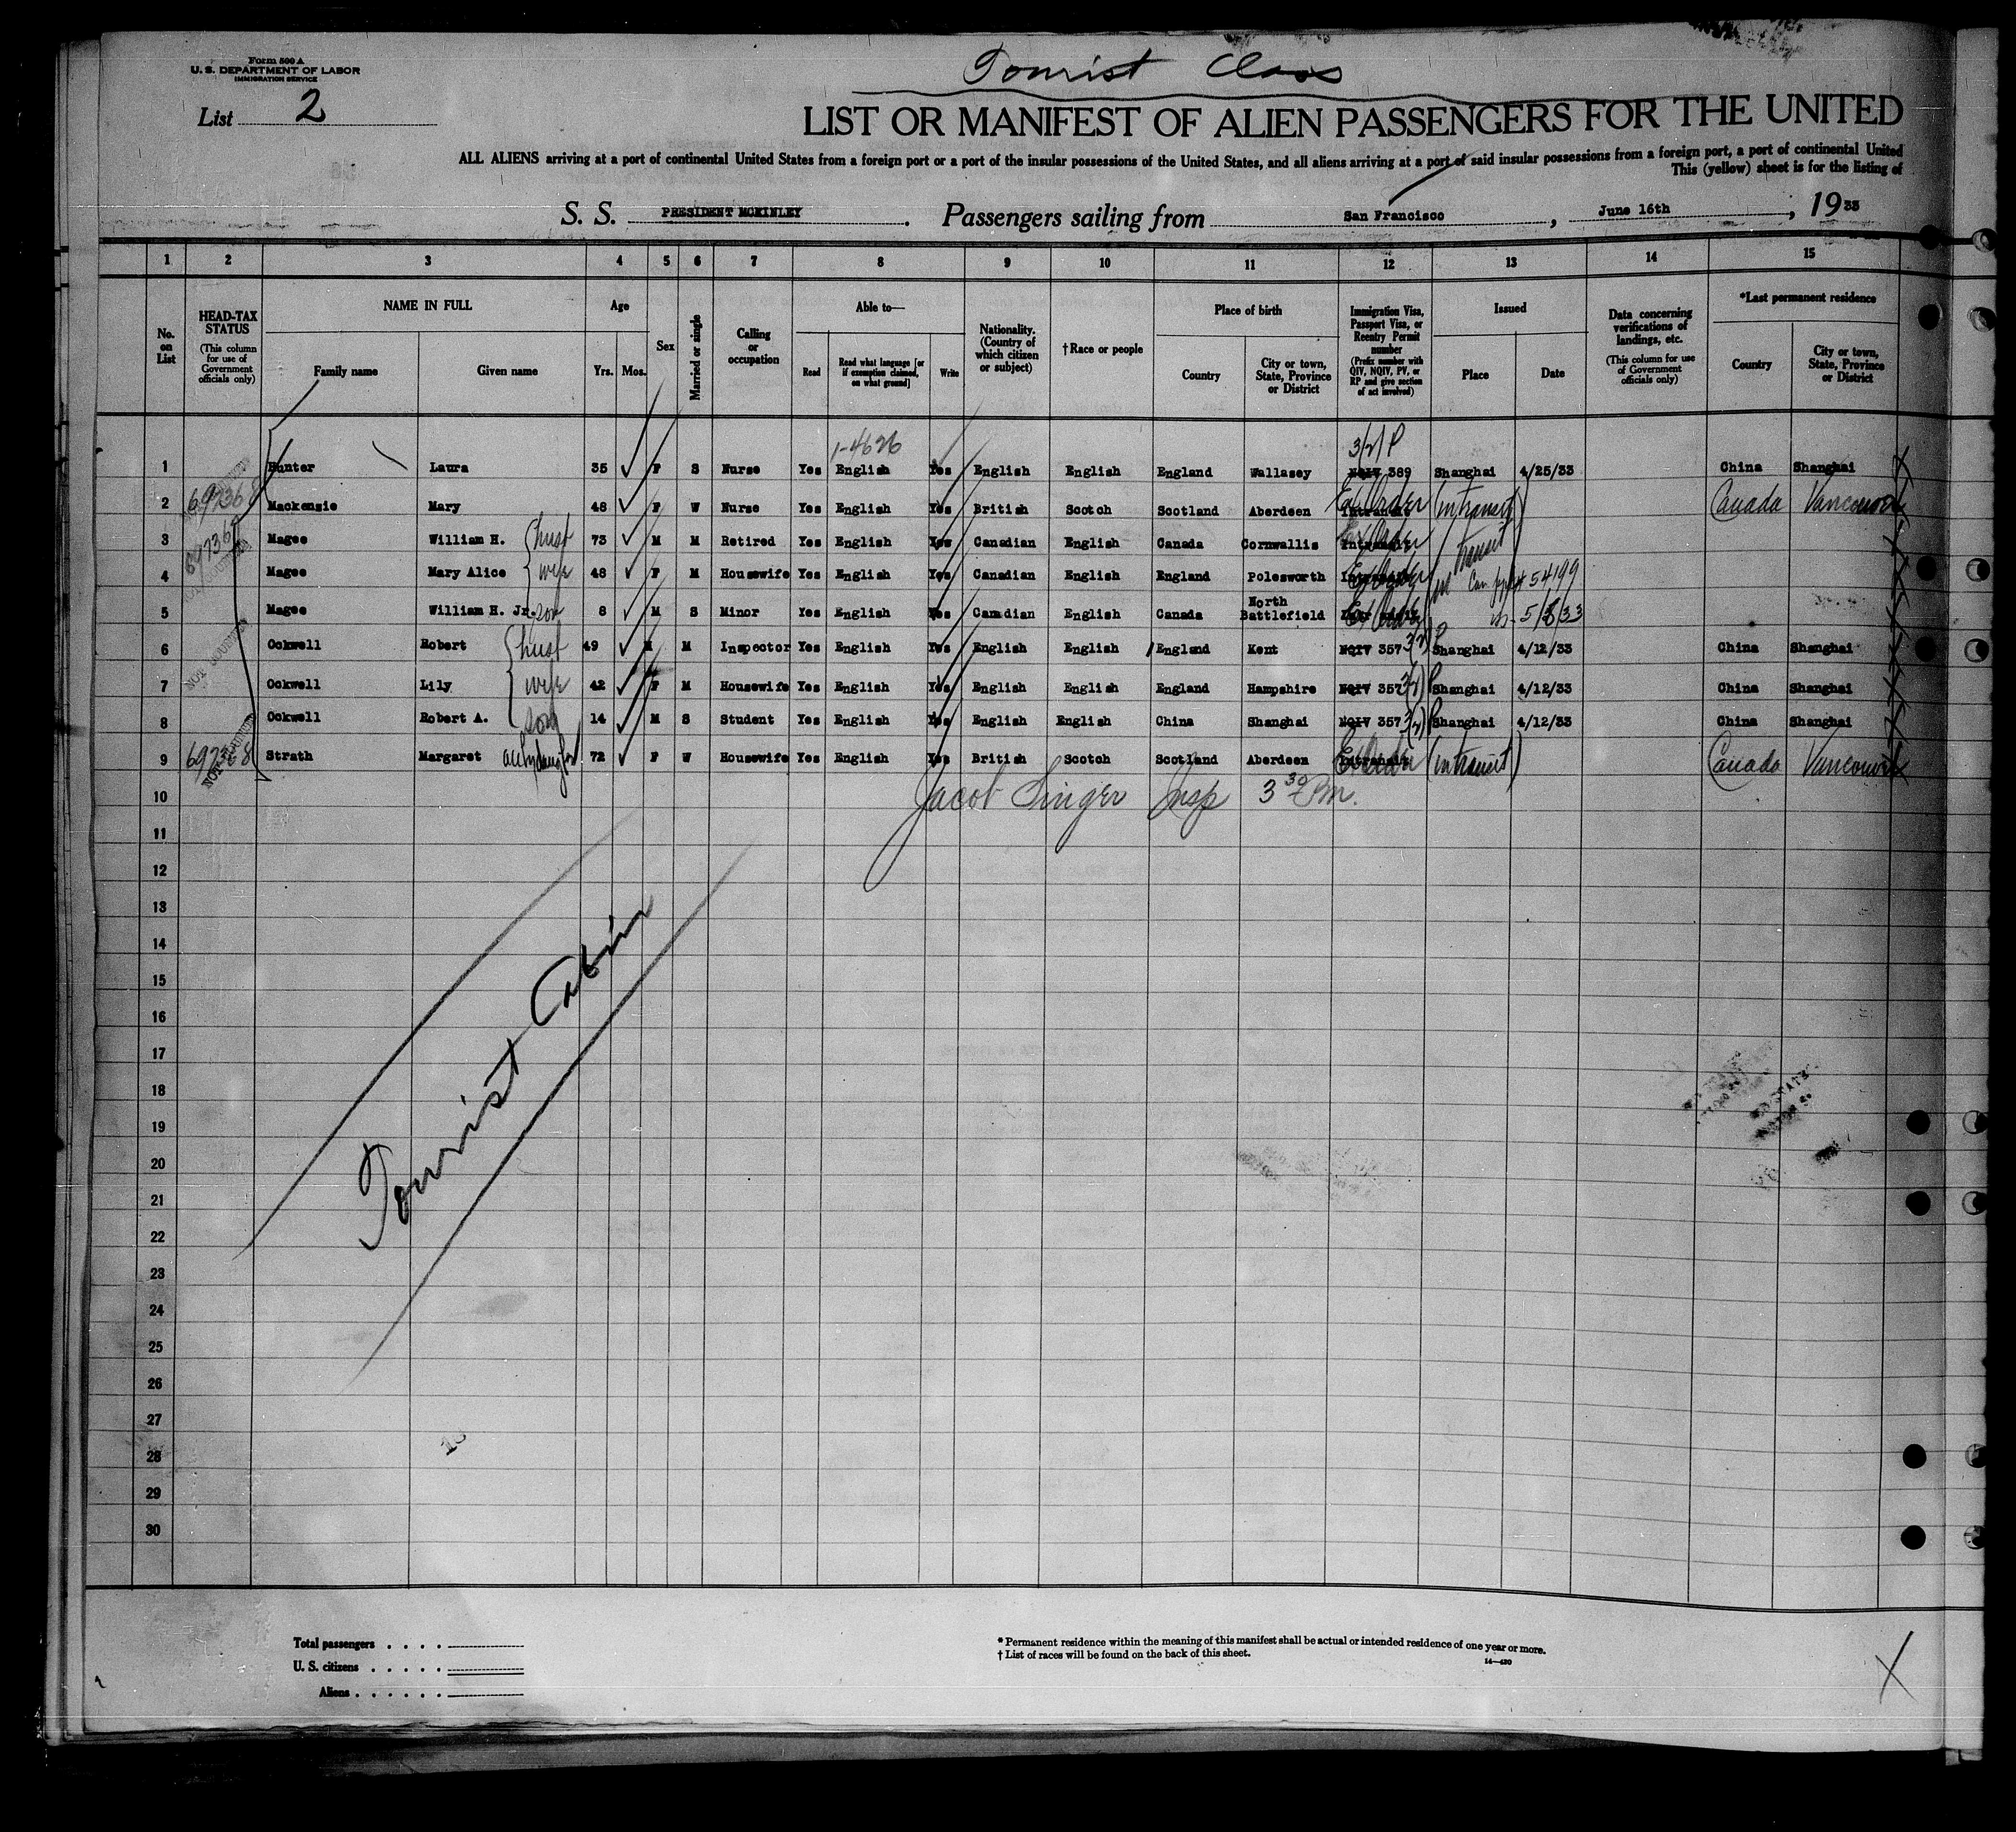 Form 500 A
U. S. DEPARTMENT OF LABOR
IMMIGRATION SERVICE
Tourist Class
List 2
LIST OR MANIFEST OF ALIEN PASSENGERS FOR THE UNITED
ALL ALIENS arriving at a port of continental United States from a foreign port or a port of the insular possessions of the United States, and all aliens arriving at a port of said insular possessions from a foreign port, a port of continental United
This (yellow) sheet is for the listing of
S. S. PRESIDENT MCKINLEY. Passengers sailing from San Francisco, June 16th, 1933
1 2 3 4 5 6 7 8 9 10 11 12 13 14 15
No. on List
HEAD-TAX STATUS (This column for use of Government officials only)
NAME IN FULL
Family name
Given name
Age
Yrs. Mos.
Sex
Married or single
Calling or occupation
Able to—
Read
Read what language [or if exemption claimed, on what ground]
Write
Nationality. (Country of which citizen or subject)
†Race or people
Place of birth
Country
City or town, State, Province or District
Immigration Visa, Passport Visa, or Reentry Permit number (Prefix number with QIV, NQIV, PV, or RP and give section of act involved)
Issued
Place
Date
Data concerning verifications of landings, etc. (This column for use of Government officials only)
*Last permanent residence
Country
City or town, State, Province or District
1-4626 3/2/P
1 Hunter Laura 35 F S Nurse Yes English Yes English English England Wallasey NQIV 389 Shanghai 4/25/33 China Shanghai
2 697368 Mackensie Mary 48 F W Nurse Yes English Yes British Scotch Scotland Aberdeen Intransit Ex Order (intransit) Canada Vancouver
3 Magee William H. husb 73 M M Retired Yes English Yes Canadian English Canada Cornwallis Intransit Ex Order transit
4 Magee Mary Alice wife 48 F M Housewife Yes English Yes Canadian English England Polesworth Intransit Ex Order in Can. 54199
5 Magee William H. Jr. son 8 M S Minor Yes English Yes Canadian English Canada North Battlefield Ex Order 5/8/33
6 Ockwell Robert husb 49 M M Inspector Yes English Yes English English England Kent NQIV 357 3/2/P Shanghai 4/12/33 China Shanghai
7 Ockwell Lily wife 42 F M Housewife Yes English Yes English English England Hampshire NQIV 357 3/2/P Shanghai 4/12/33 China Shanghai
8 Ockwell Robert A. son 14 M S Student Yes English Yes English English China Shanghai NQIV 357 3/2/P Shanghai 4/12/33 China Shanghai
9 697368 Strath Margaret 72 F W Housewife Yes English Yes British Scotch Scotland Aberdeen Intransit Ex Order (intransit) Canada Vancouver
10 Jacob Singer Insp 3 30 Pm.
11
12
13
14
15
16
17
18
19
20
21
22
23
24
25
26
27
28
29
30
Tourist Cabin
Total passengers
U. S. citizens
Aliens
* Permanent residence within the meaning of this manifest shall be actual or intended residence of one year or more.
† List of races will be found on the back of this sheet.
14—430
X